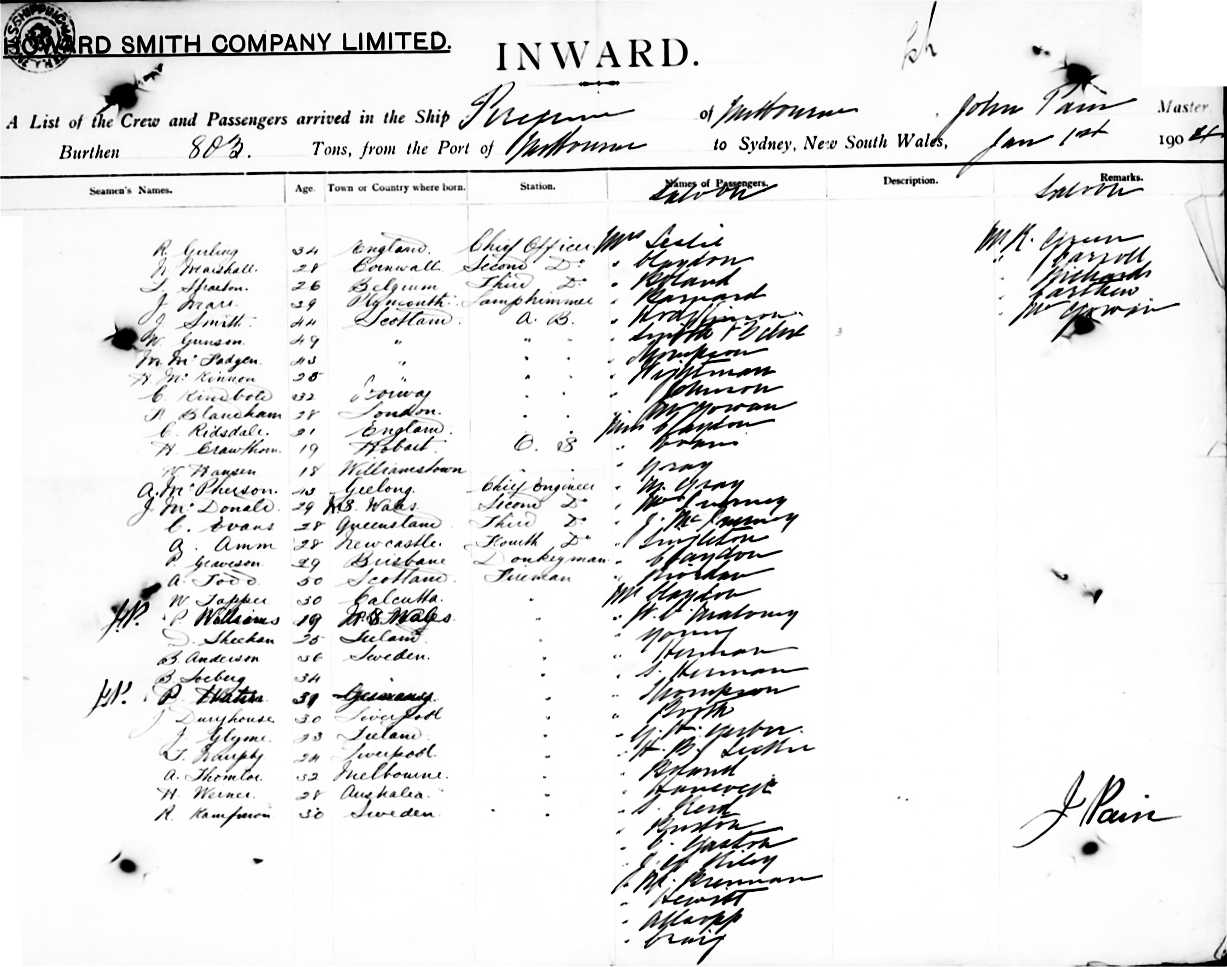 HOWARD SMITH COMPANY LIMITED.
INWARD.
A List of the Crew and Passengers arrived in the Ship Peregrine of Melbourne, John Pain Master
Burthen 803 Tons, from the Port of Melbourne to Sydney, New South Wales, Jan 1st 1904
Seamen's Names. Age. Town or Country where born. Station. Names of Passengers. Description. Remarks.
Saloon Saloon
R. Gerling 34 England. Chief Officer Mrs Leslie Mr R. Green
N. Marshall. 28 Cornwall Second Do " Claydon " Carroll
26 Belgium Third Do " Boland " Richards
J. Mare 39 Plymouth Lamptrimmer " Barnard
J. Smith 44 Scotland. A. B. " Hodgkinson " McGowan
W. Gunson 49 " " "
M. McFadgen 43 " " " " Thompson
A. McKinnon 25 " " " Wightman
C. Kindbold 32 Norway " " " Johnson
R. Blancham 28 London. " " " McGowan
C. Ridsdale. 21 England. " " Miss Claydon
H. Crawthorn 19 Hobart. O. S " Evans
W. Hansen 18 Williamstown " Gray
A. McPherson. 43 Geelong. Chief Engineer " M. Gray
J. McDonald. 29 N.S. Wales Second Do
C. Evans 28 Queensland Third Do
A. Amm 28 Newcastle. Fourth Do " Singleton
P. Graveson 29 Brisbane Donkeyman " Claydon
A. Todd 50 Scotland. Fireman " Riordan
W. Tapper 30 Calcutta. " Mr Claydon
P. Williams 19 N.S. Wales. " " W. C. Maloney
D. Sheehan 25 Ireland. " " Young
B. Anderson 36 Sweden. " " Herman
B. Soeberg 34 " " S. Herman
P. 39 Germany " " Thompson
J. Duryhouse 30 Liverpool " " Booth
J. Glynn 23 Ireland. "
T. Murphy 24 Liverpool " " H. B.
A. Thomloe 32 Melbourne. " " Boland
H. Werner. 28 Australia. " " Hancock
R. Kampman 30 Sweden. " " S. Kerd
J Pain
" Buxton
" C. Gaston
" Riley
" Brennan
" Hewitt
" Allsopp
" Craig